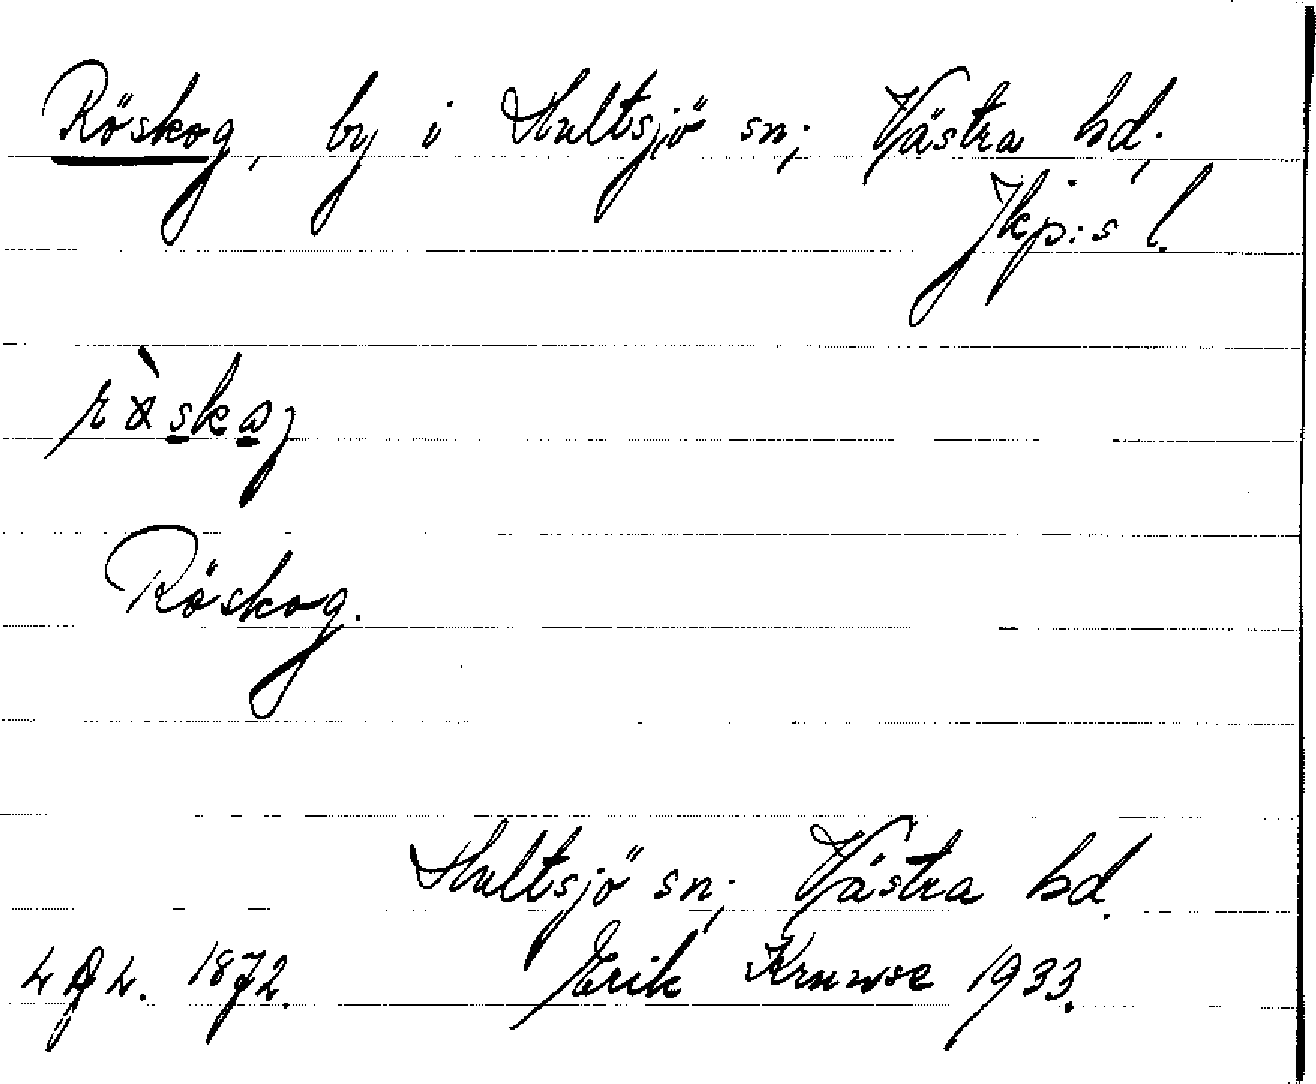 Röskog, by i Hultsjö sn; Västra hd;
Jkp:s l.
Röskog.
Hultsjö sn; Västra hd.
1872. Erik Kruuse 1933.